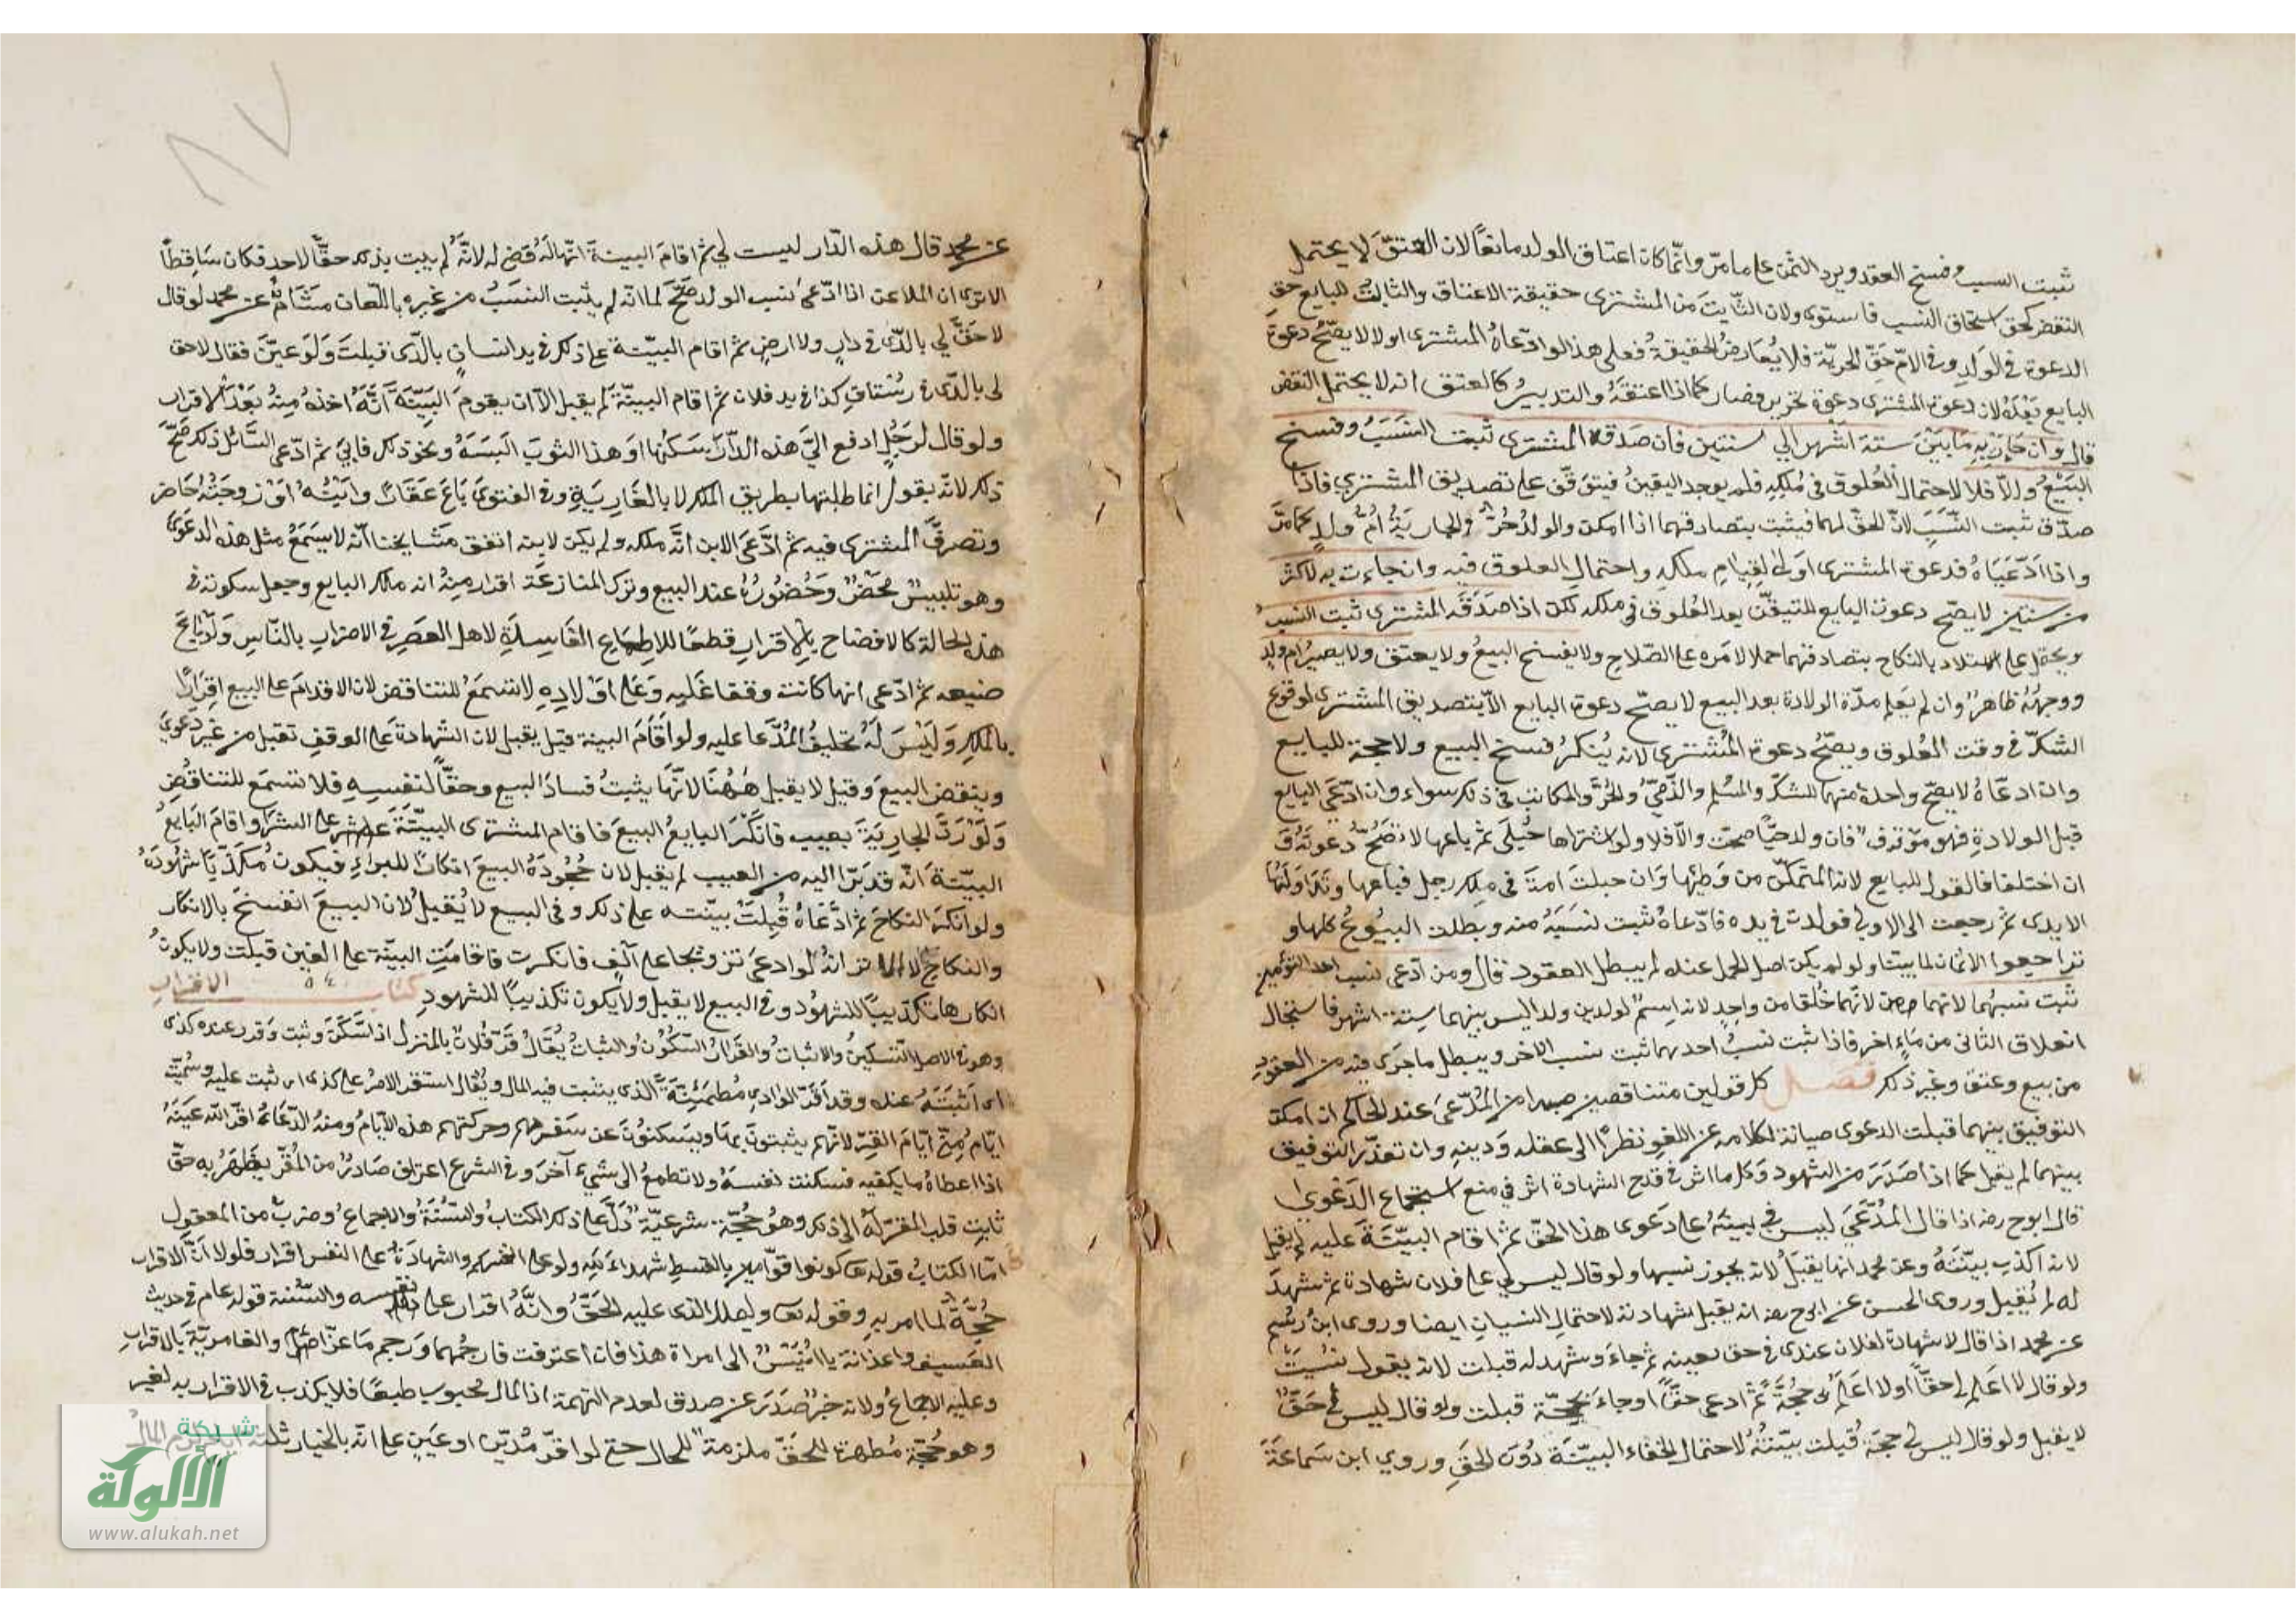 ثبت النسب وفسخ العقد ويرد الثمن على ما مرّ وانّما كان اعتاق الولد مانعًا لان العتق لا يحتمل
النقض كحق استحقاق النسب فاستويا ولان الثّابت من المشترى حقيقة الاعتاق والثابت للبايع حق
الدعوة فى الولد وفى الامّ حقّ الحريّة فلا يُعارض الحقيقة فعلى هذا لو ادّعاهُ المشترى اولا لا يصحّ دعوة
البايع بَعْدَهُ لان دعوة المشترى دعوة تحرير فصار كما اذا اعتقهُ والتدبير كالعتق انه لا يحتمل النقض
قال وان جاءت به ما بين ستة اشهر الى سنتين فان صدقه المشترى ثبت النسَبُ وفسخ
البَيْعُ والاّ فلا لاحتمال العُلوق فى مُلكِهِ فلم يوجد اليقين فيتوقّف على تصديق المشترى فاذا
صدّق ثبت النّسَب لانّ الحقّ لهما فيثبت بتصادقهما اذا امكن والولدُ حُرّ والجارية أمّ ولدٍ كما مرّ
واذا ادّعَيَاهُ فدعوة المشترى اولى لقيام ملكه واحتمال العلوق فيه وان جاءت به لاكثر
من سنتين لا يصحّ دعوة البايع للتيقّن بعد العُلوق فى ملكه لكن اذا صدّقه المشترى ثبت النسب
ويحمل على الاستيلاد بالنكاح بتصادقهما حملا لامره على الصّلاح ولا يفسخ البيعُ ولا يعتق ولا يصيرُ ام ولدٍ
ووجههُ ظاهرٌ وان لم يعلم مدّة الولادة بعد البيع لا يصحّ دعوة البايع الاّ بتصديق المشترى لوقوع
الشكّ فى وقت العُلوق ويصحّ دعوة المُشترى لانه يُنكر فسخ البيع ولا حجة للبايع
وان ادعاهُ لا يصحّ واحدة منهما للشكّ والمسلم والذّمّيّ والحُرّ والمكاتب فى ذلك سواء وان ادّعى البايع
قبل الولادةِ فهو موقوف فان ولد حيًّا صحّت والاّ فلا ولو اشتراها حُبلى ثم باعها لا تصحّ دعوتهُ
ان اختلفا فالقول للبايع لانه المتمكّن من وَطْئِها وَان حبلَت امة فى ملك رجل فباعها وتداولتها
الايدى ثم رجعت الى الاول فولدت فى يده فادّعاهُ ثبت نسَبُهُ منه وبطلت البيُوعُ كلها و
تراجعوا الاثمان لما بينا ولو لم يكن اصل الحبل عنده لم يبطل العقود قال ومن ادّعى نسب احد التوءمين
ثبت نسبهما لانهما خُلقا من واحدٍ لانه اسمٌ لولدين ولدا ليس بينهما ستة اشهر فاستحال
انعلاق الثانى من ماءٍ اخر فاذا ثبت نسبُ احدهما ثبت نسب الاخر ويبطل ما جَرَى فيه من العقود
من بيع وعتق وغير ذلك فصل كل قولين متناقضين صدرا من المُدّعى عند الحاكم ان امكن
التوفيق بينهما قبلت الدعوى صيانة لكلامه عن اللغو نظرًا الى عقله ودينه وان تعذّر التوفيق
بينهما لم يقبل كما اذا صَدَرَ من الشهود وكل ما اثر فى قدح الشهادة اثر فى منع استماع الدعوى
قال ابو ح رضه اذا قال المُدّعى ليس لى بينة على دَعوى هذا الحقّ ثم اقام البيّنة عليه لم يقبل
لانه اكذب بيّنتهُ وعن محمد انها يقبلُ لانه يجوز نسيها ولو قال ليس لى على فلان شهادة ثم شهدَ
له لم تُقبل وروى الحسن عن ابى ح رضه انه يقبل شهادته لاحتمال النسيان ايضا وروى ابن رستم
عن محمد اذا قال لا شهادة لفلان عندى فى حق بعينه ثم جاءَ وشهد له قبلت لانه يقول نسيتُ
ولو قال لا اعلم لى حقًّا او لا اعلَمُ لى حجّةً ثم ادعى حقًّا او جاءَ بحجّة قبلت ولو قال ليس لى حَقٌّ
لا يقبل ولو قال ليس لى حجّة قُبلت بيّنتهُ لاحتمال الخفاء البيّنة دُون الحَقّ وروى ابن سَماعَة
عن محمد قال هذه الدّار ليست لى ثم اقامَ البينةَ انّها لهُ قضى له لانّهُ لم يثبت بذلك حقًّا لاحد فكان سَاقطًا
الا ترى ان الملاعن اذا ادّعى نسب الولد صَحّ لما انّه لم يثبت النسَبُ من غيره باللّعان هشامٌ عن محمد لو قال
لا حَقَّ لى بالرّى فى دارٍ ولا ارضٍ ثم اقام البيّنة على ذلك فى يد انسانٍ بالرّى قبلتَ وَلَو عيّنَ فقال لا حق
لى بالرّى فى رُسْتاقِ كذا فى يد فلان ثم اقام البيّنة لم يقبل الاّ ان يقوم البَيّنة انّهُ اخذهُ مِنهُ بَعْدَ الاقرار
ولو قال لرَجُلٍ ادفع اليّ هذه الدّار اسكنها او هذا الثوبَ البَسَهُ ونحو ذلك فابى ثم ادّعى السّائل ذلك صَحّ
ذلك لانّه يقول انما طلبتها بطريق الملك لا بالعَارِيَةِ وفى الفتوى بَاعَ عَقَارًا وابنُهُ او زوجتُهُ حَاضر
وتصرفَ المشترى فيه ثم ادّعَى الابن انّه ملكه ولم يكن لابيه اتفق مشَايخنا انّه لا يسمَعُ مثل هذه الدعوى
وهو تلبيسٌ محضٌ وحُضُورُهُ عند البيع وترك المنازعَة اقرار منهُ انه ملك البايع وجعل سكوته فى
هذه الحالة كالافصاح بالاقرارِ قطعًا للاطماع الفاسِدَةِ لاهل العصرِ فى الاضرارِ بالنّاسِ وَلَو باعَ
ضيعه ثم ادّعى انها كانت وقفا عَليه وَعَلى اوْلادِهِ لا تسمعُ للتناقض لان الاقدامَ على البيع اقرارًا
بالملك وَلَيْسَ لَهُ تحليفُ المُدّعا عليه ولو اقامَ البينة قيل يقبل لان الشهادة على الوقفِ تقبل من غير دعوىَ
وينقض البيعَ وقيل لا يقبل هٰهُنَا لانّهَا يثبتُ فسادَ البيع وحقًّا لنفسِهِ فلا تسمع للتناقضِ
وَلَوْ رَدّ الجارية بعيب فانكَرَ البايعُ البيعَ فاقام المشترى البيّنة على الشرا واقامَ البَايعُ
البيّنة انّه قد بَرَا اليه من العيب لم يقبل لان جُحُودَهُ البيعَ انكارًا للبراءِ فيكون مُكذّبًا شُهُودَهُ
ولو انكَرَ النكاحَ ثم ادّعَاهُ قُبِلَتْ بيّنته على ذلك وفى البيع لا يُقبلُ لان البيعَ انفسخَ بالانكار
والنكاح لا الا تر انّهُ لو ادعى تزوجها على الف فانكرت فاقامَتِ البينة على الفين قبلت ولا يكونُ
انكارها تكذيبًا للشهُود وفى البيع لا يقبل ولا يكون تكذيبًا للشهود كتاب الاقرار
وهو فى الاصل التسكينُ والاثباتُ والقَرارُ السّكُونُ والثباتُ يُقَالُ قَرّ فُلانٌ بالمنزل اذا سَكَنَ وثبت وقرر عنده كذى
اى اثبتَهُ عنده وقد اقَرّ الوادى مُطمَئِنّةً الذى يثبت فيه المال ويُقال استقر الامرُ على كذى اى ثبت عليه وسُمّيتْ
ايّامُ مِنًى ايّامَ القَرِّ لانّهم يثبتونَ بها ويسكنُونَ عن سَفرهم وحركتهم هذه الايّامُ ومنهُ الدّعاءُ اقرّ الله عينَهُ
اذا اعطاهُ ما يكفيه فسكنت نفسهُ ولا تطمعُ الى شىءٍ آخرَ وفى الشرع اعتراف صَادرٌ من المُقرّ يظهَرُ به حقّ
ثابت قلب المقرّ له الى ذلك وهُو حُجّة شرعيّة دَلّ على ذلك الكتابُ والسّنّةُ والاجماعُ وضربٌ من المعقول
امّا الكتابُ قوله تعا كونوا قوّامين بالقسطِ شهداءَ لله ولو على انفسكم والشهادَةُ على النفس اقرار فلولا انّ الاقرار
حُجّةٌ لما امر بهِ وقوله تعا وليملل الذى عليه الحَقُّ وانّهُ اقرار على نفسه والسّنة قوله عم فى حديث
العَسيف واغدُ انت يا اُنَيْسُ الى امراة هذا فان اعترفت فارجُمها وَرجم مَاعزًا والغامديّةَ بالاقرارِ
وعليه الاجماعُ ولانه خبرٌ صَدَرَ عن صدق لعدم التهمة اذ المال محبوب طبعًا فلا يكذب فى الاقرار به لغير
وهو حُجّة مُظهرة للحَقّ ملزمة للحال حتى لو اقرّ بدين او عَينٍ على انّه بالخيار ثلثة
شبكة
الألوكة
www.alukah.net